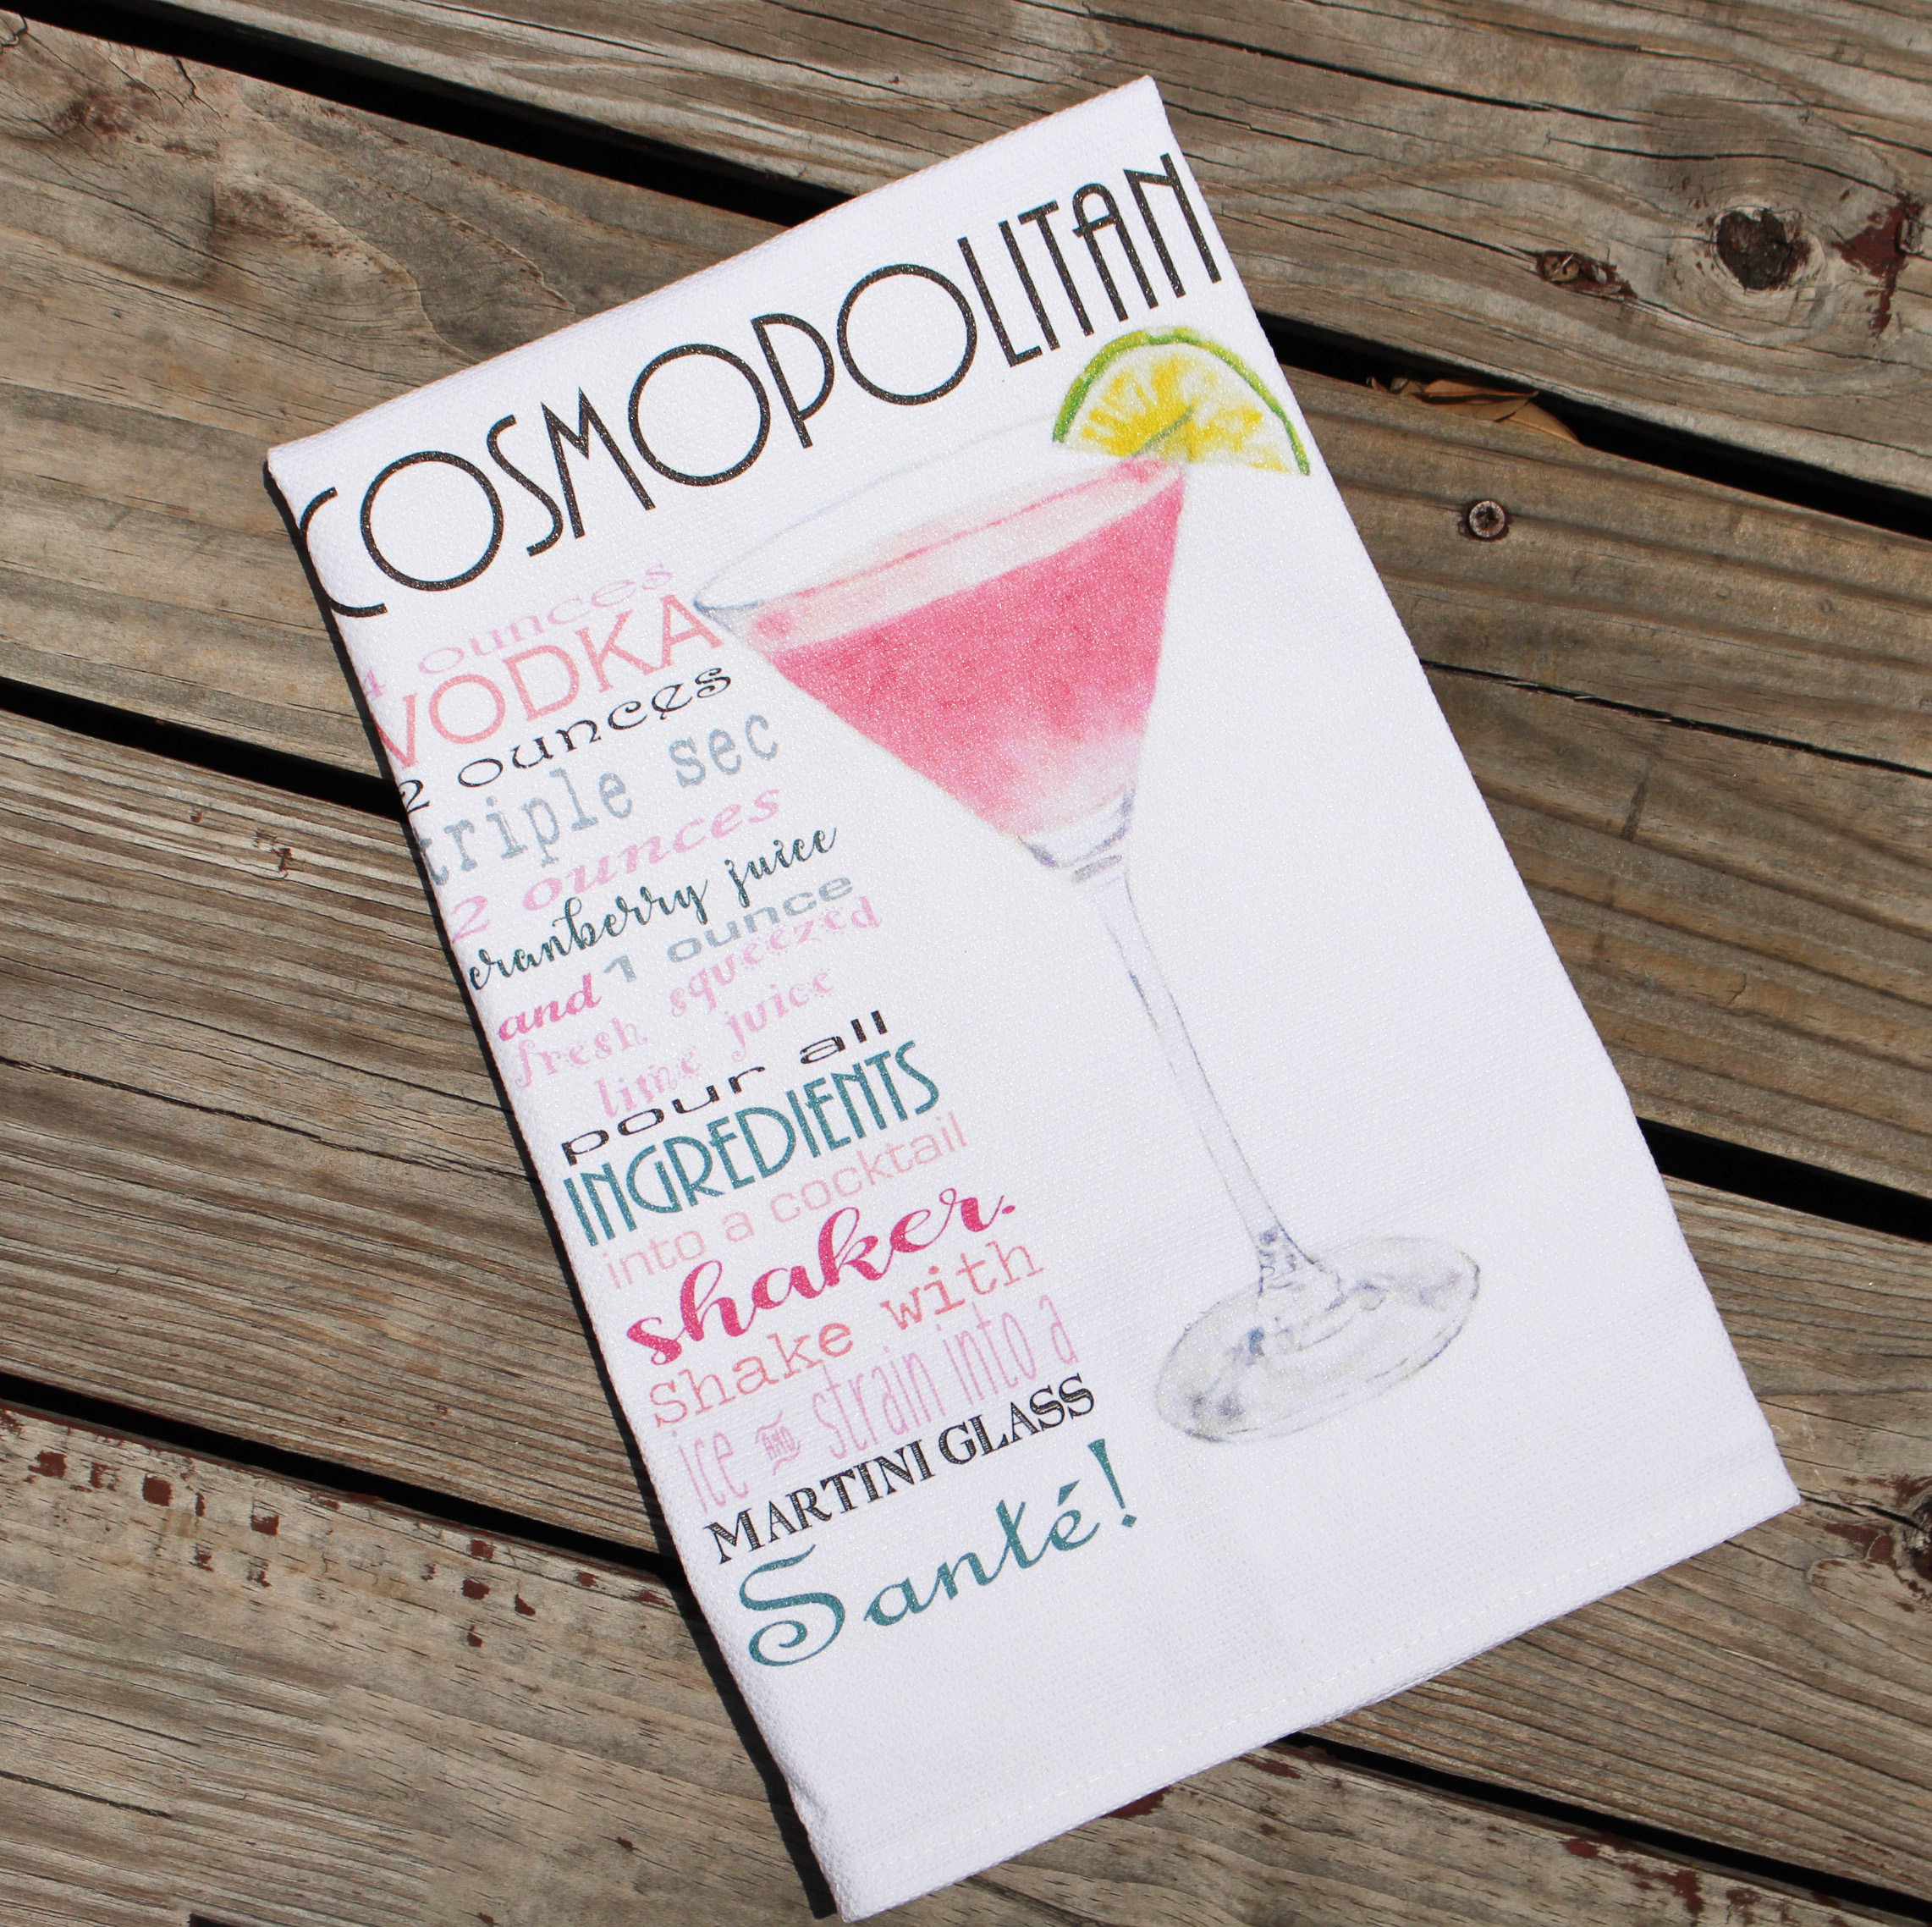 COSMOPOLITAN
4 ounces
VODKA
2 ounces
triple sec
2 ounces
cranberry juice
and 1 ounce
fresh squeezed
lime juice
pour all
INGREDIENTS
into a cocktail
shaker.
shake with
ice AND strain into a
MARTINI GLASS
Santé!